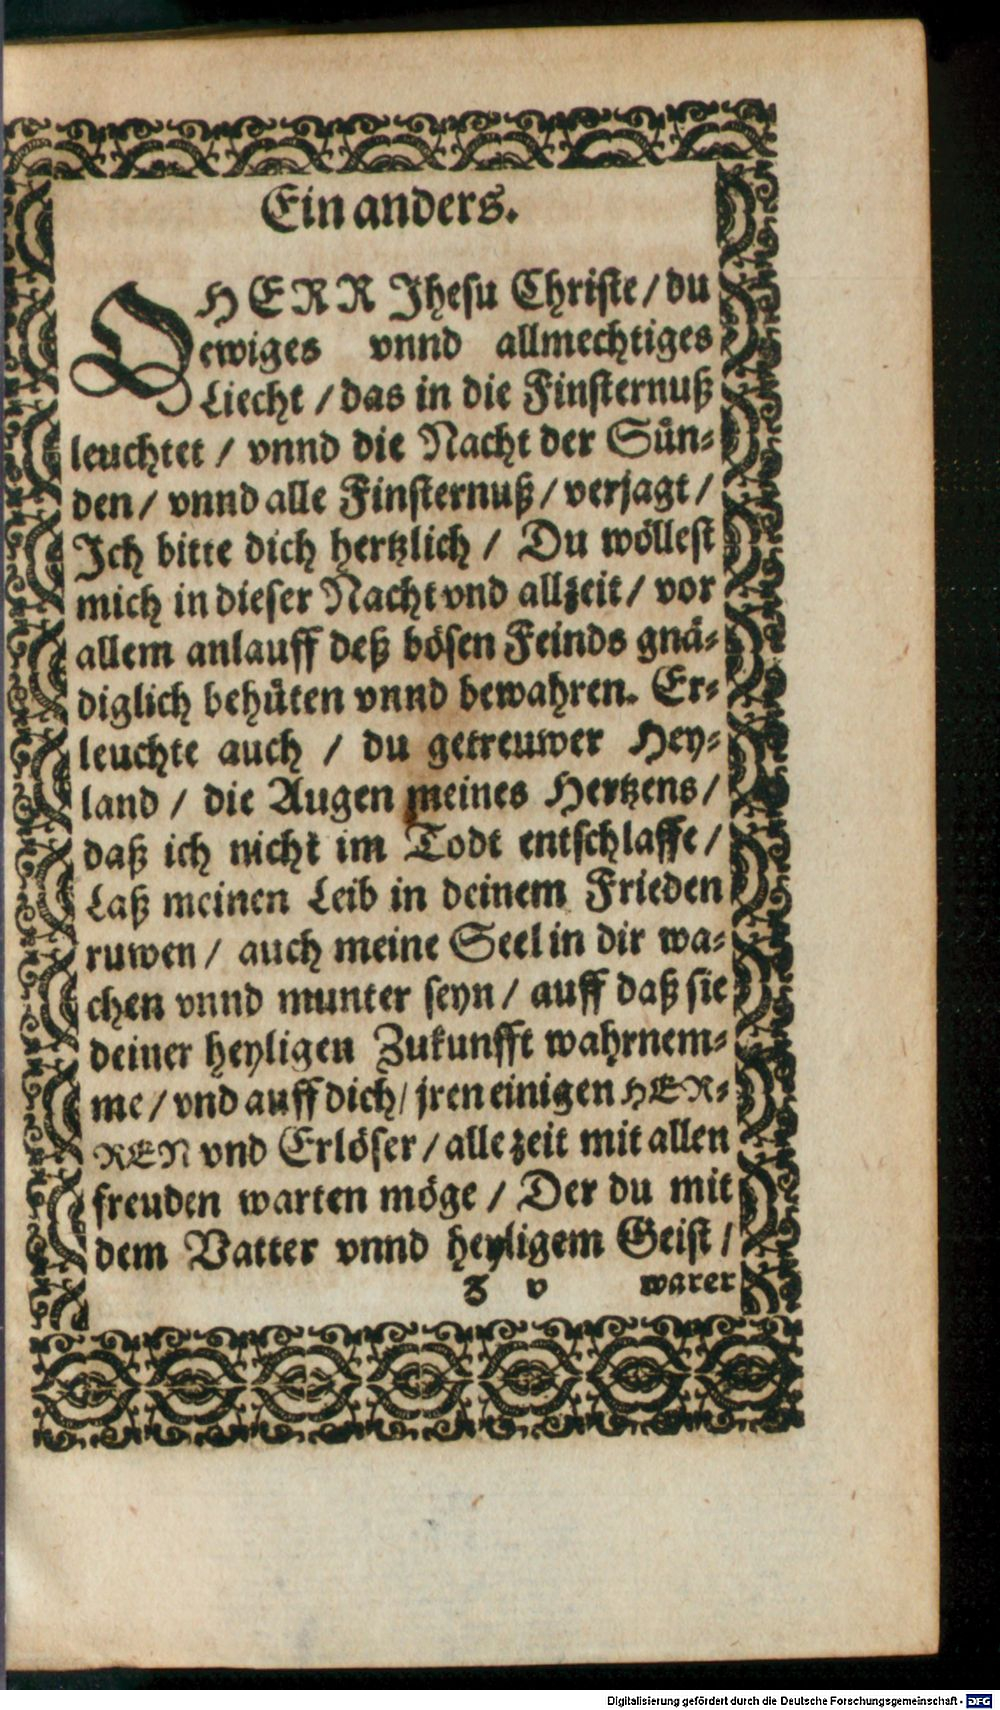 Ein anders.
O HERR Jhesu Christe / du
ewiges vnnd allmechtiges
Liecht / das in die Finsternuß
leuchtet / vnnd die Nacht der Sün⸗
den / vnnd alle Finsternuß / verjagt /
Ich bitte dich hertzlich / Du wöllest
mich in dieser Nacht vnd allzeit / vor
allem anlauff deß bösen Feinds gnä⸗
diglich behüten vnnd bewahren. Er⸗
leuchte auch / du getreuwer Hey⸗
land / die Augen meines Hertzens /
daß ich nicht im Todt entschlaffe /
Laß meinen Leib in deinem Frieden
ruwen / auch meine Seel in dir wa⸗
chen vnnd munter seyn / auff daß sie
deiner heyligen Zukunfft wahrnem⸗
me / vnd auff dich / jren einigen HER⸗
REN vnd Erlöser / alle zeit mit allen
freuden warten möge / Der du mit
dem Vatter vnnd heyligem Geist /
z v warer
Digitalisierung gefördert durch die Deutsche Forschungsgemeinschaft - DFG